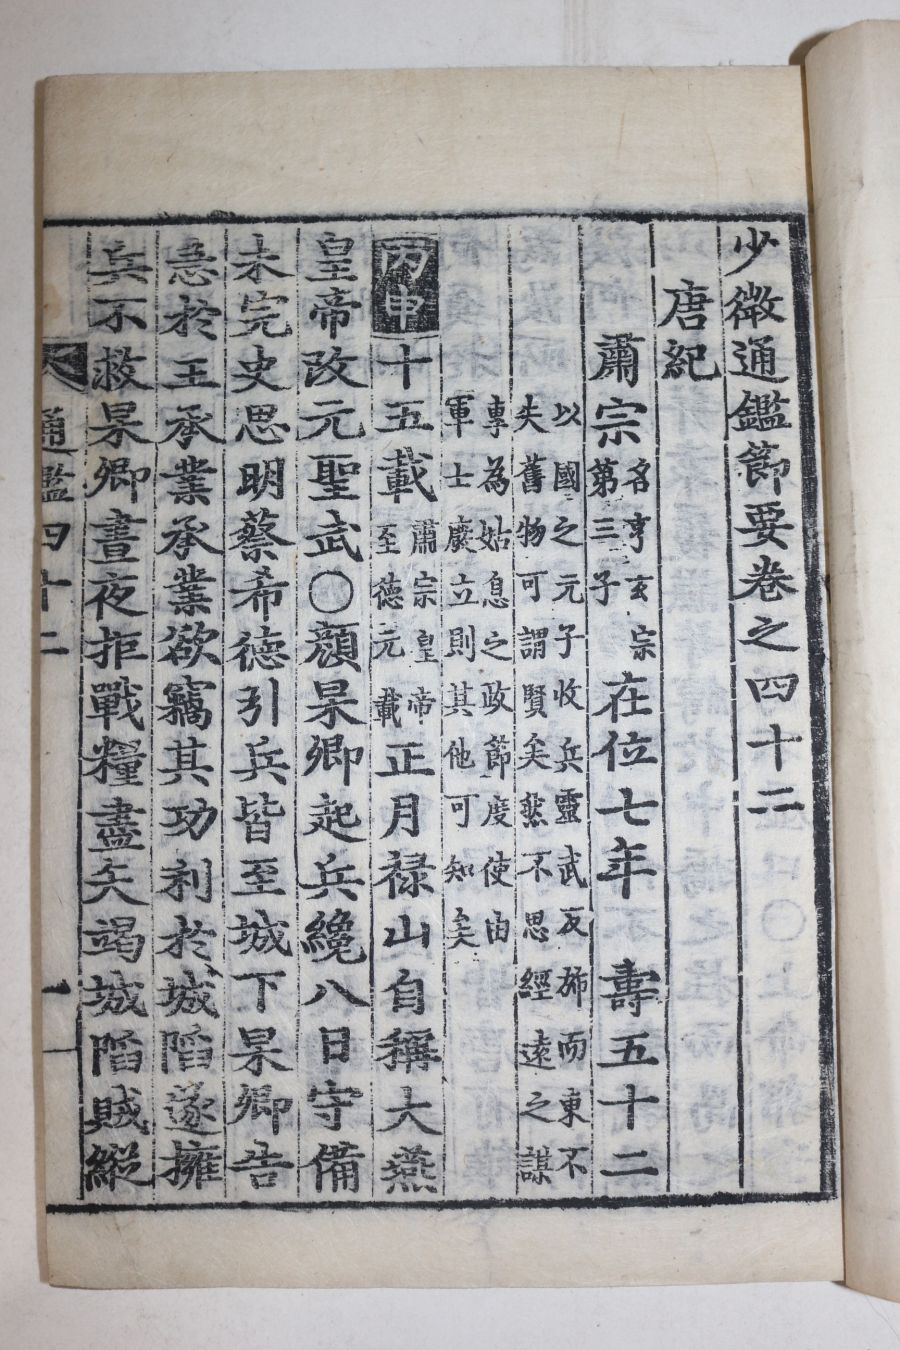 少微通鑑節要卷之四十二
唐紀
肅宗名亨玄宗第三子在位七年 壽五十二
以國之元子收兵靈武反斾而東不
失舊物可謂賢矣然不思經遠之謀
專為姑息之政節度使由
軍士廢立則其他可知矣
丙申十五載肅宗皇帝至德元載正月祿山自稱大燕
皇帝改元聖武○顏杲卿起兵纔八日守備
未完史思明蔡希德引兵皆至城下杲卿告
急於王承業承業欲竊其功利於城陷遂擁
兵不救杲卿晝夜拒戰糧盡矢竭城陷賊縱
通鑑四十二
一